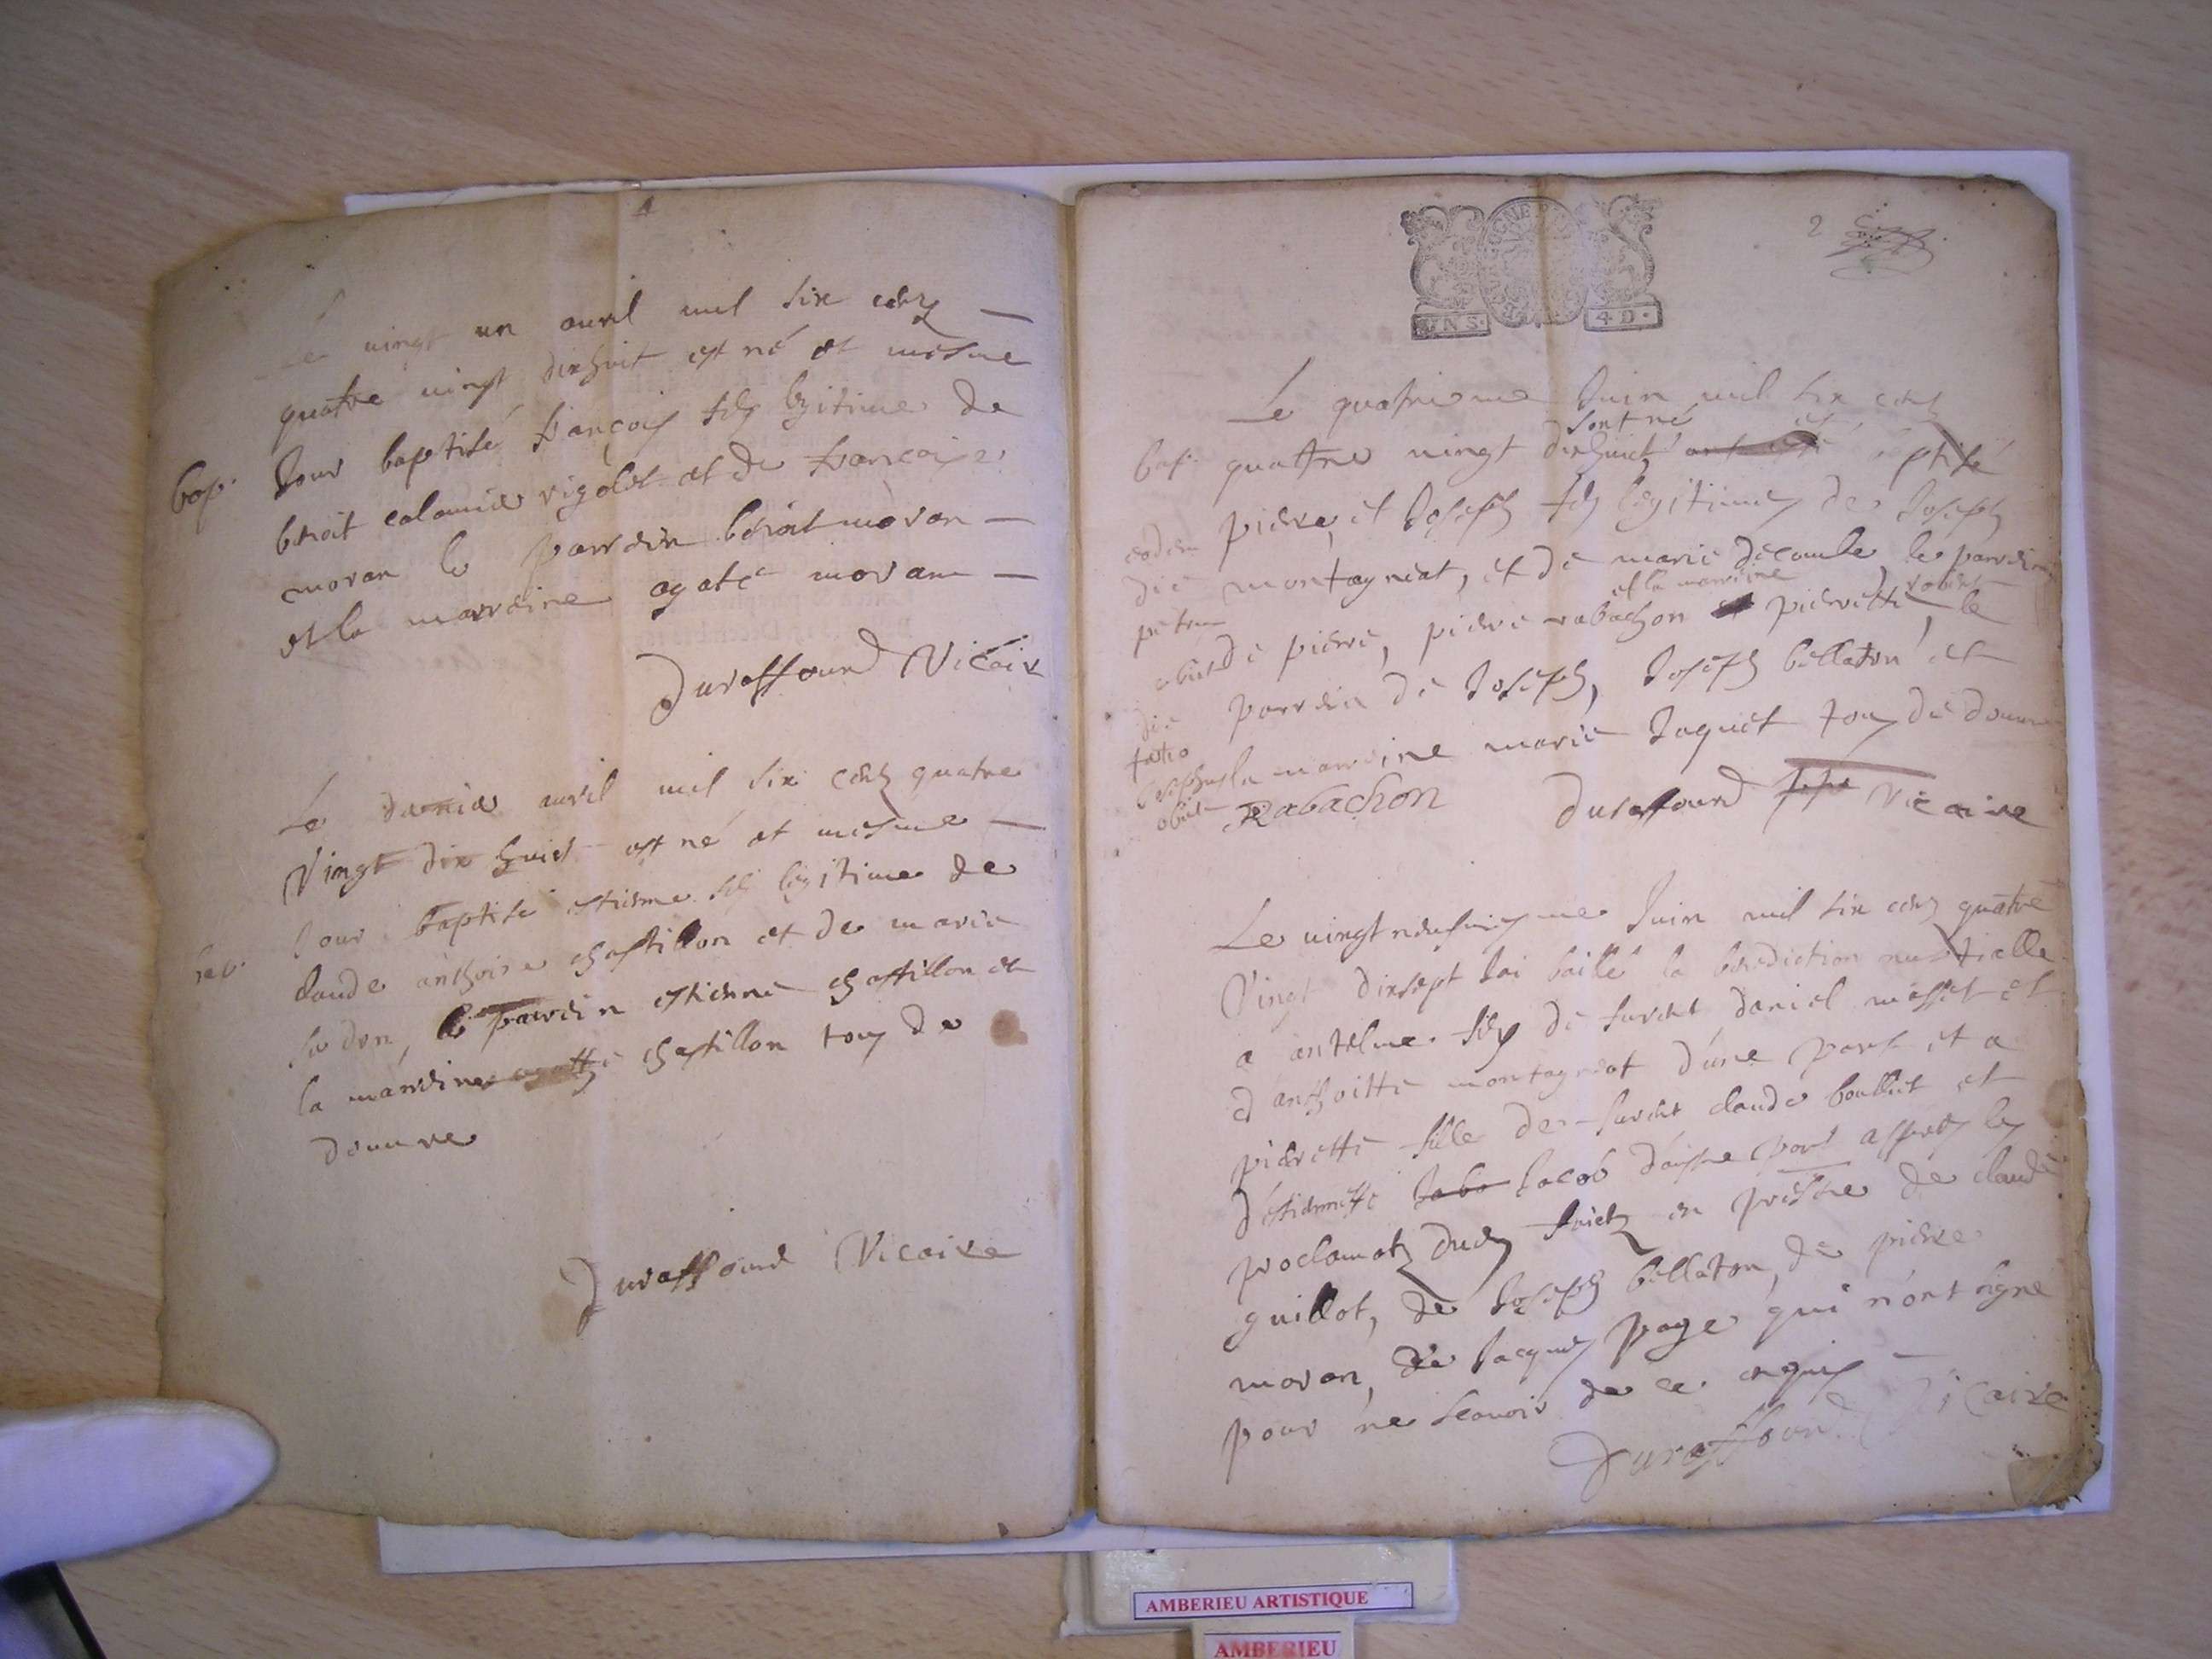 Le vingt un avril mil six centz
quatre vingt dixhuit est né et mesme
bap. Jour baptisé françois fils legitime de
benoit calamier rigolet et de françoise
moran le parrein benoit moran
et la marreine agate moran
Duraffourd Vicaire
Le dernier avril mil six centz quatre
Vingt dix huict est né et mesme
Jour baptisé estienne fils legitime de
claude anthoine chastillon et de marie
le parrein estienne chastillon et
la marreine chastillon tous de
douvre
Duraffourd Vicaire
2
4 D.
Le quatrieme Juin mil six centz
sont né et
bap. quattre vingt dixhuict ptisé
pierre, et Joseph fils legitimes de Joseph
eodem
die montagneat, et de marie decombe, le parrein
et la marreine
de pierre, pierre rabachon pierrette, le
obiit
parrein de Joseph, Joseph bellaton et
die
la marreine marie Jaquet tous de douvre
Josephus
obiit
Rabachon Duraffourd Vicaire
Le vingt neufviesme Juin mil six centz quatre
Vingt dixsept Jai baillé la benediction nuptialle
a antelme fils de furent daniel messet et
d'anthoitte montagneat d'une part et a
pierrette fille de furent claude bollliet et
d'estiennette Jacob d'aultre part appres les
proclamatz deues faictz en presence de claude
guillot, de Joseph bellaton, de pierre
moran, de Jacques page qui n'ont signé
pour ne scavoir de ce enquis
Duraffourd Vicaire
AMBERIEU ARTISTIQUE
AMBERIEU